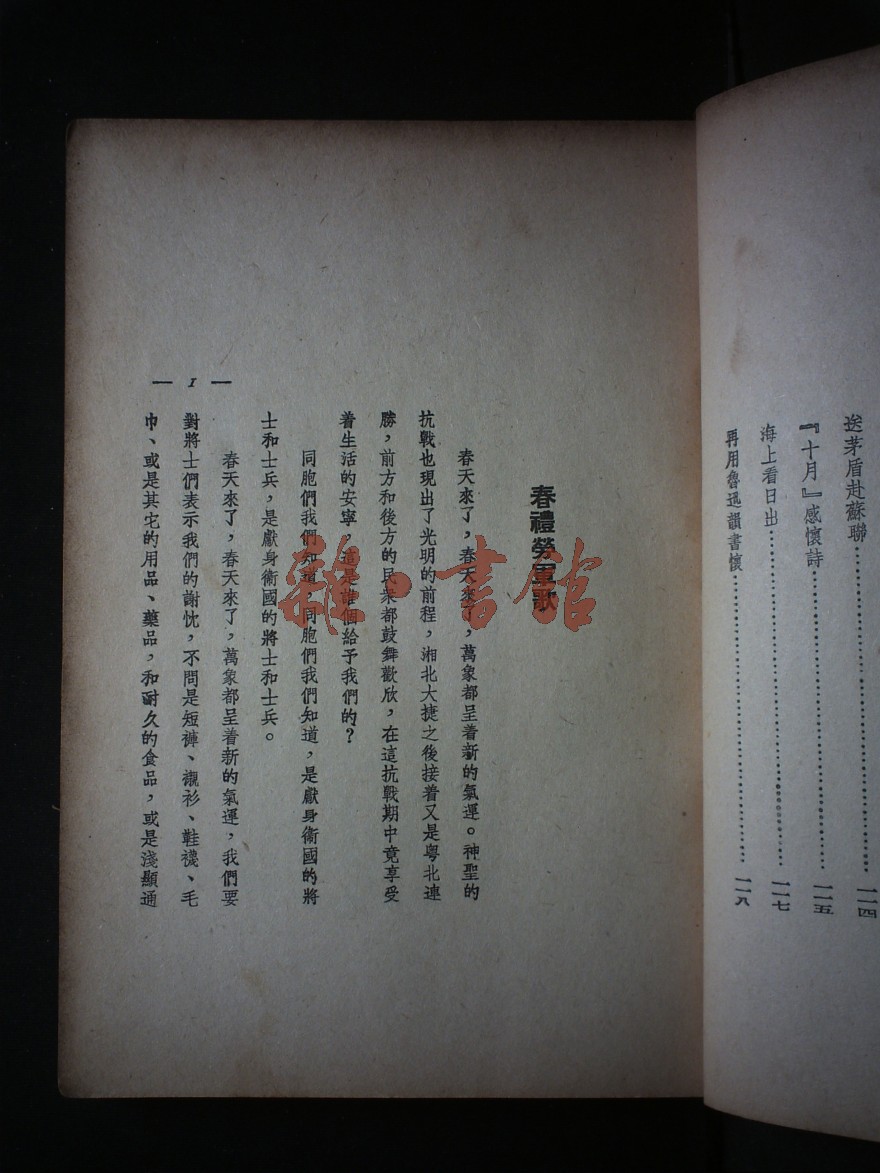 送茅盾赴蘇聯……………………一一四
『十月』感懷詩……………………一一五
海上看日出……………………一一七
再用魯迅韻書懷……………………一一八
春禮勞軍歌
春天來了，春天來了，萬象都呈着新的氣運。神聖的
抗戰也現出了光明的前程，湘北大捷之後接着又是粵北連
勝，前方和後方的民衆都鼓舞歡欣，在這抗戰期中竟享受
着生活的安寧，這是誰個給予我們的？
同胞們我們知道，同胞們我們知道，是獻身衛國的將
士和士兵，是獻身衛國的將士和士兵。
春天來了，春天來了，萬象都呈着新的氣運，我們要
對將士們表示我們的謝忱，不問是短褲、襯衫、鞋襪、毛
巾、或是其它的用品、藥品，和耐久的食品，或是淺顯通
— 1 —
雜·書館